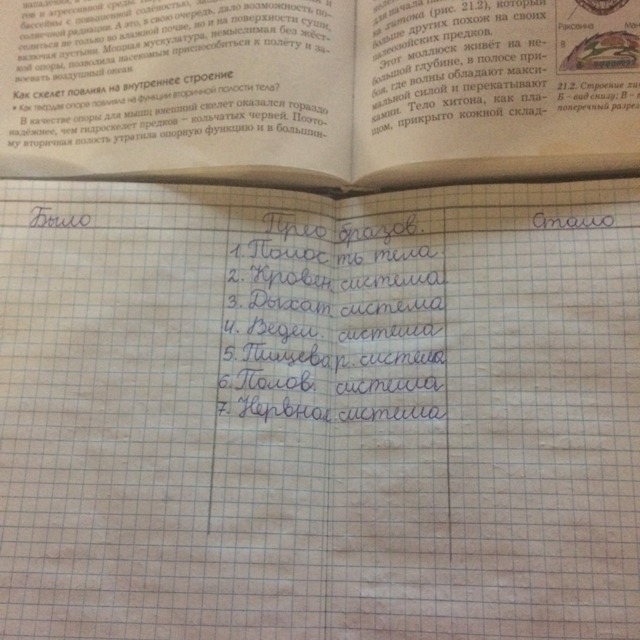 солнечной радиации. А это, в свою очередь, дало возможность по-
селиться не только во влажной почве, но и на поверхности суши,
включая пустыни. Мощная мускулатура, немыслимая без жёст-
кой опоры, позволила насекомым приспособиться к полёту и за-
воевать воздушный океан.
Как скелет повлиял на внутреннее строение
• Как твёрдая опора повлияла на функции вторичной полости тела?
В качестве опоры для мышц внешний скелет оказался гораздо
надёжнее, чем гидроскелет предков – кольчатых червей. Поэто-
му вторичная полость утратила опорную функцию и в большин-
хитона (рис. 21.2), который
больше других похож на своих
предков.
Этот моллюск живёт на не-
большой глубине, в полосе при-
боя, где волны обладают макси-
мальной силой и перекатывают
камни. Тело хитона, как пла-
щом, прикрыто кожной склад-
Раковина
В
21.2. Строение
Б – вид снизу; В –
поперечный
Было Преобразов. Стало
1. Полость тела.
2. Кровен. система
3. Дыхат. система
4. Выдел. система
5. Пищевар. система
6. Полов. система
7. Нервная система